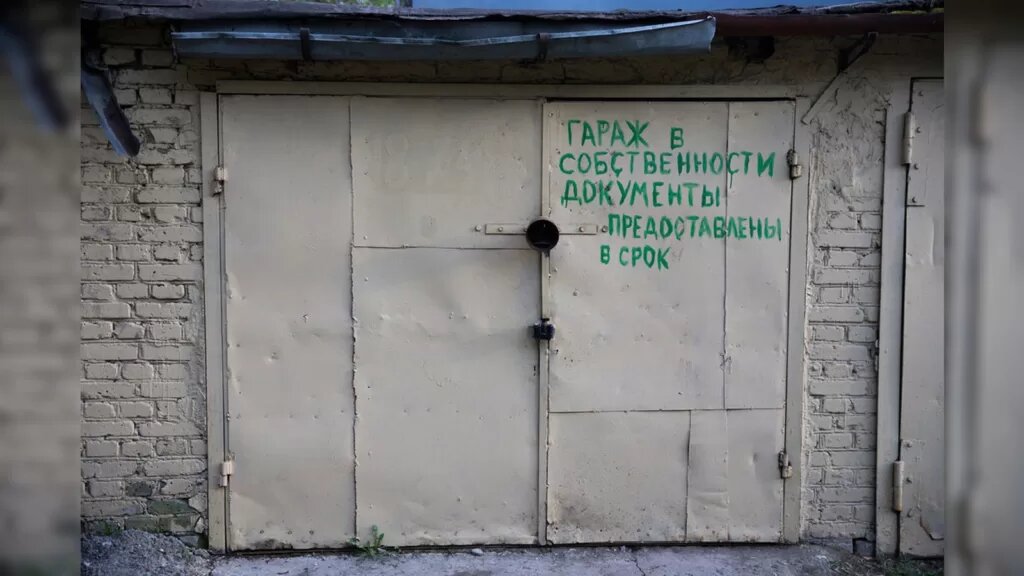 ГАРАЖ В
СОБСТВЕННОСТИ
ДОКУМЕНТЫ
ПРЕДОСТАВЛЕНЫ
В СРОК